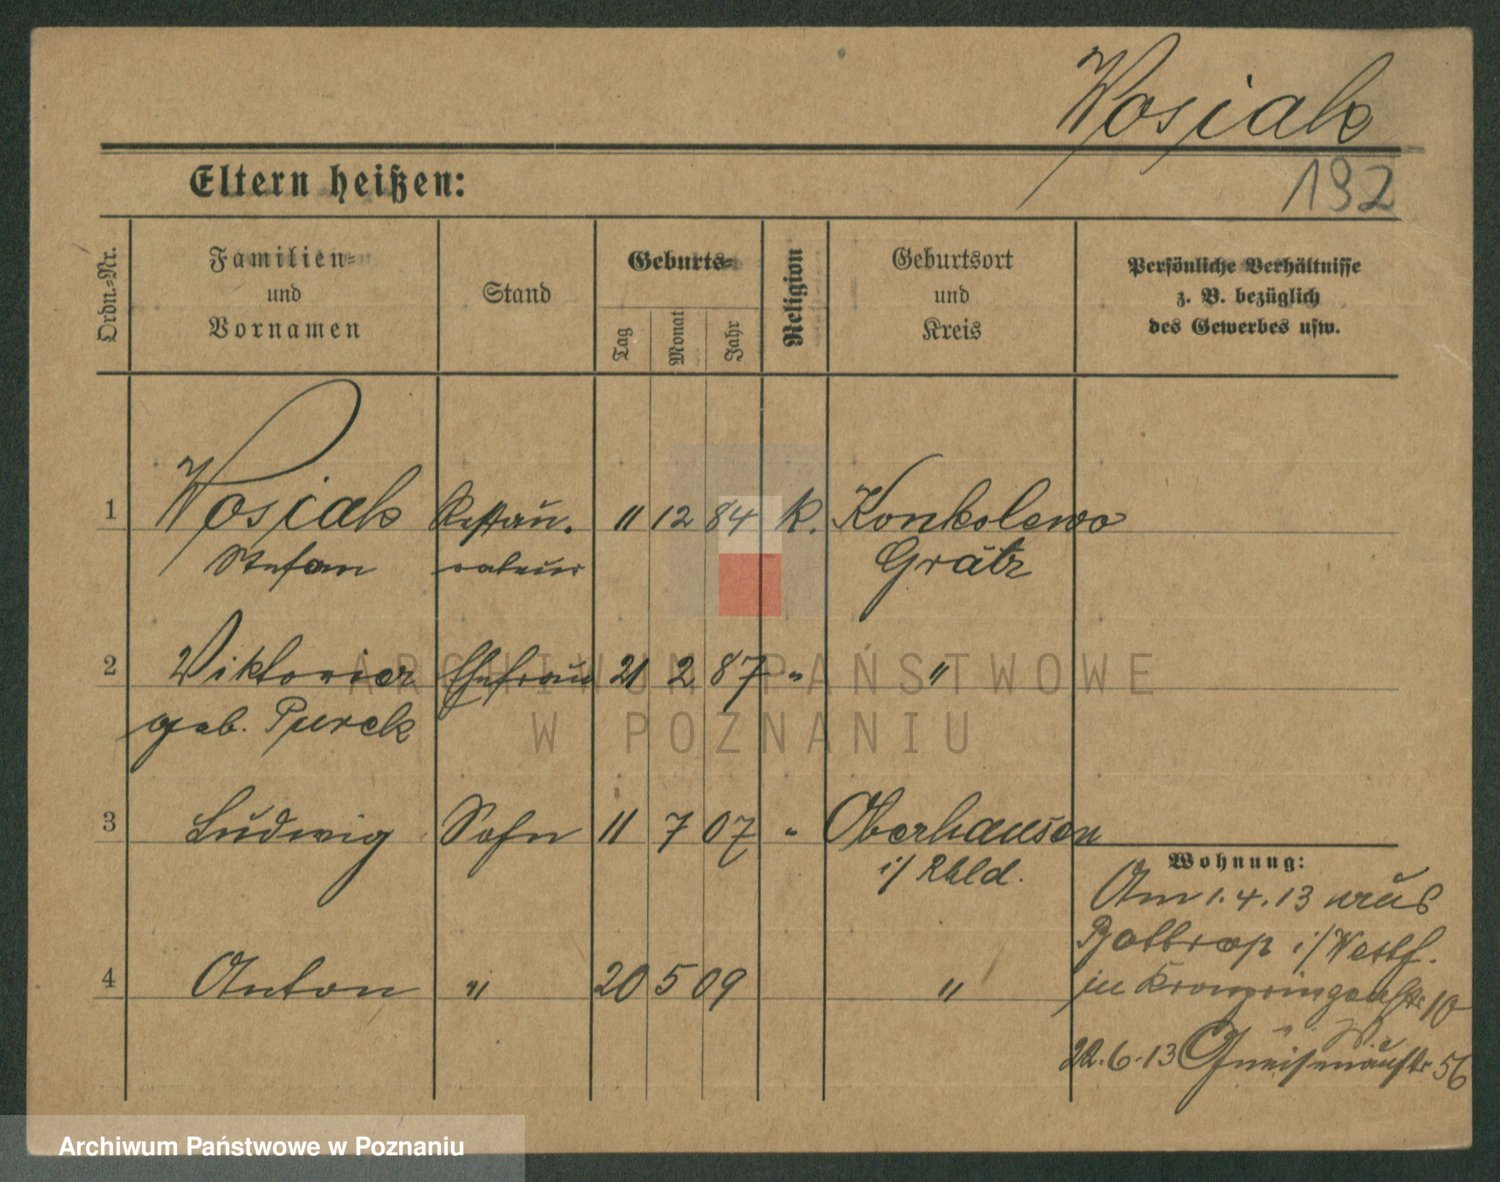 Wosiak
192
Eltern heißen:
Ordn.-Nr.
Familien-
und
Vornamen
Stand
Geburts-
Tag
Monat
Jahr
Religion
Geburtsort
und
Kreis
Persönliche Verhältnisse
z. B. bezüglich
des Gewerbes usw.
1 Wosiak Restau. 11 12 84 k. Konkolewo
Stefan rateur Grätz
2 Viktoria Ehefrau 21 2 87 " "
geb. Purek
3 Ludwig Sohn 11 7 07 " Oberhausen
i/ Rhld.
Wohnung:
Am 1.4.13 aus
Bottrop i/Westf.
4 Anton " 20 5 09 "
in Kronprinzenstr 10
22.6.13 Gneisenaustr 56
ARCHIWUM PAŃSTWOWE
W POZNANIU
Archiwum Państwowe w Poznaniu